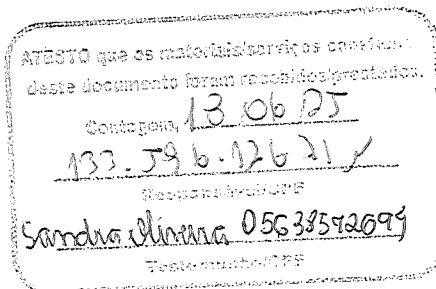 ATESTO que os materiais/serviços constant
deste documento foram recebidos/prestados.
Contagem, 13 06 25
133.596.126 21
Responsável/CPF
Sandra Oliveira 05638572699
Testemunha/CPF